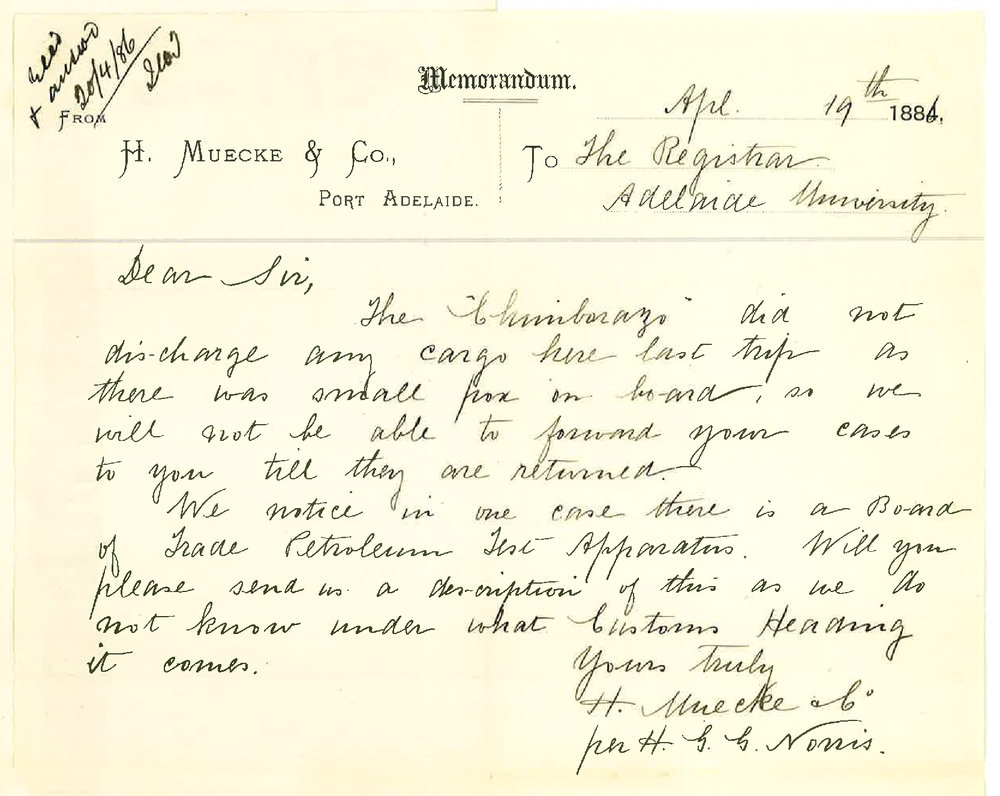 recd
& answd
20/4/86
Memorandum.
Apl. 19th 1886,
FROM
H. MUECKE & CO.,
PORT ADELAIDE.
To The Registrar
Adelaide University.
Dear Sir,
The "Chimborazo" did not
discharge any cargo here last trip as
there was small pox on board, so we
will not be able to forward your cases
to you till they are returned.
We notice in one case there is a Board
of Trade Petroleum Test Apparatus. Will you
please send us a description of this as we do
not know under what Customs Heading
it comes.
Yours truly
H. Muecke & Co
per H. G. G. Norris.